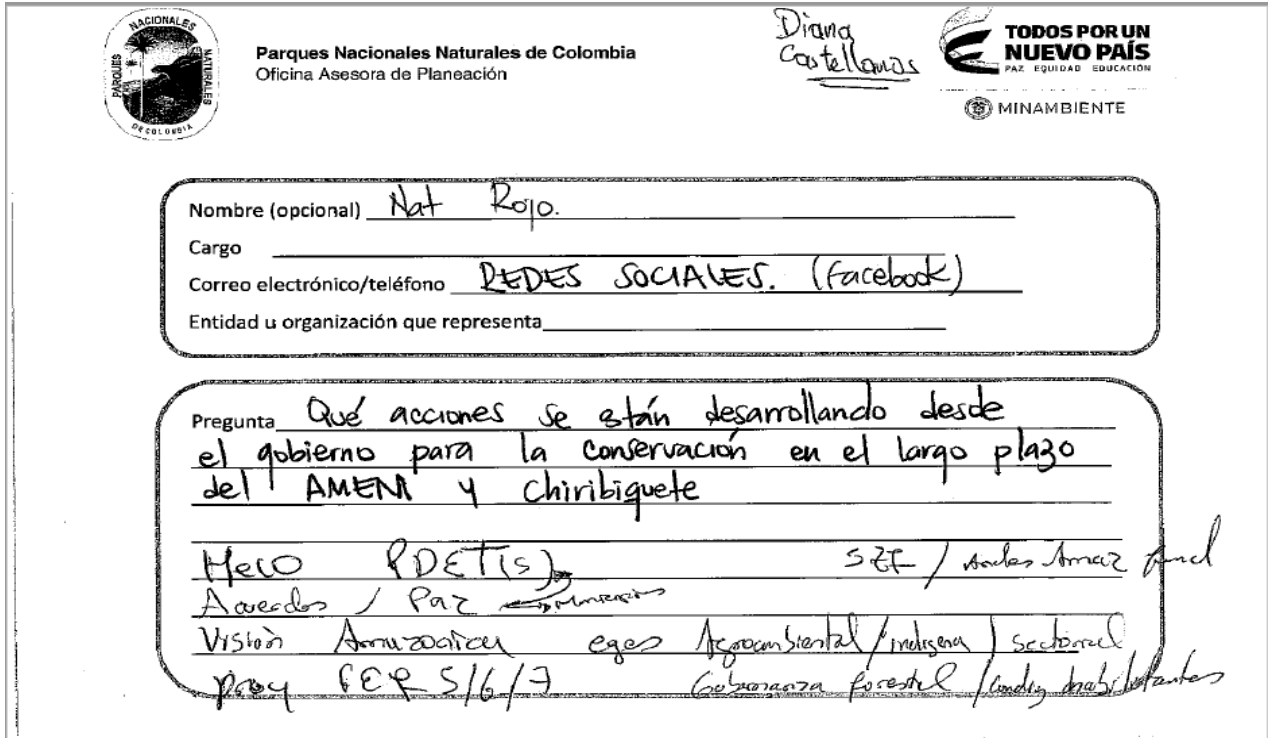 PARQUES NACIONALES NATURALES
DE COLOMBIA
Parques Nacionales Naturales de Colombia
Oficina Asesora de Planeación
Diana
Castellanos
TODOS POR UN
NUEVO PAÍS
PAZ EQUIDAD EDUCACIÓN
MINAMBIENTE
Nombre (opcional) Nat Rojo.
Cargo
Correo electrónico/teléfono REDES SOCIALES. (Facebook)
Entidad u organización que representa
Pregunta Qué acciones se están desarrollando desde
el gobierno para la conservación en el largo plazo
del AMEM y Chiribiquete
Meco PDET(s) SZF / Andes Amaz
Acuerdos / Paz
Visión Amazonica ejes Agroambiental / indigena / sectorial
proy 5/6/7 Gobernanza forestal / habilitantes